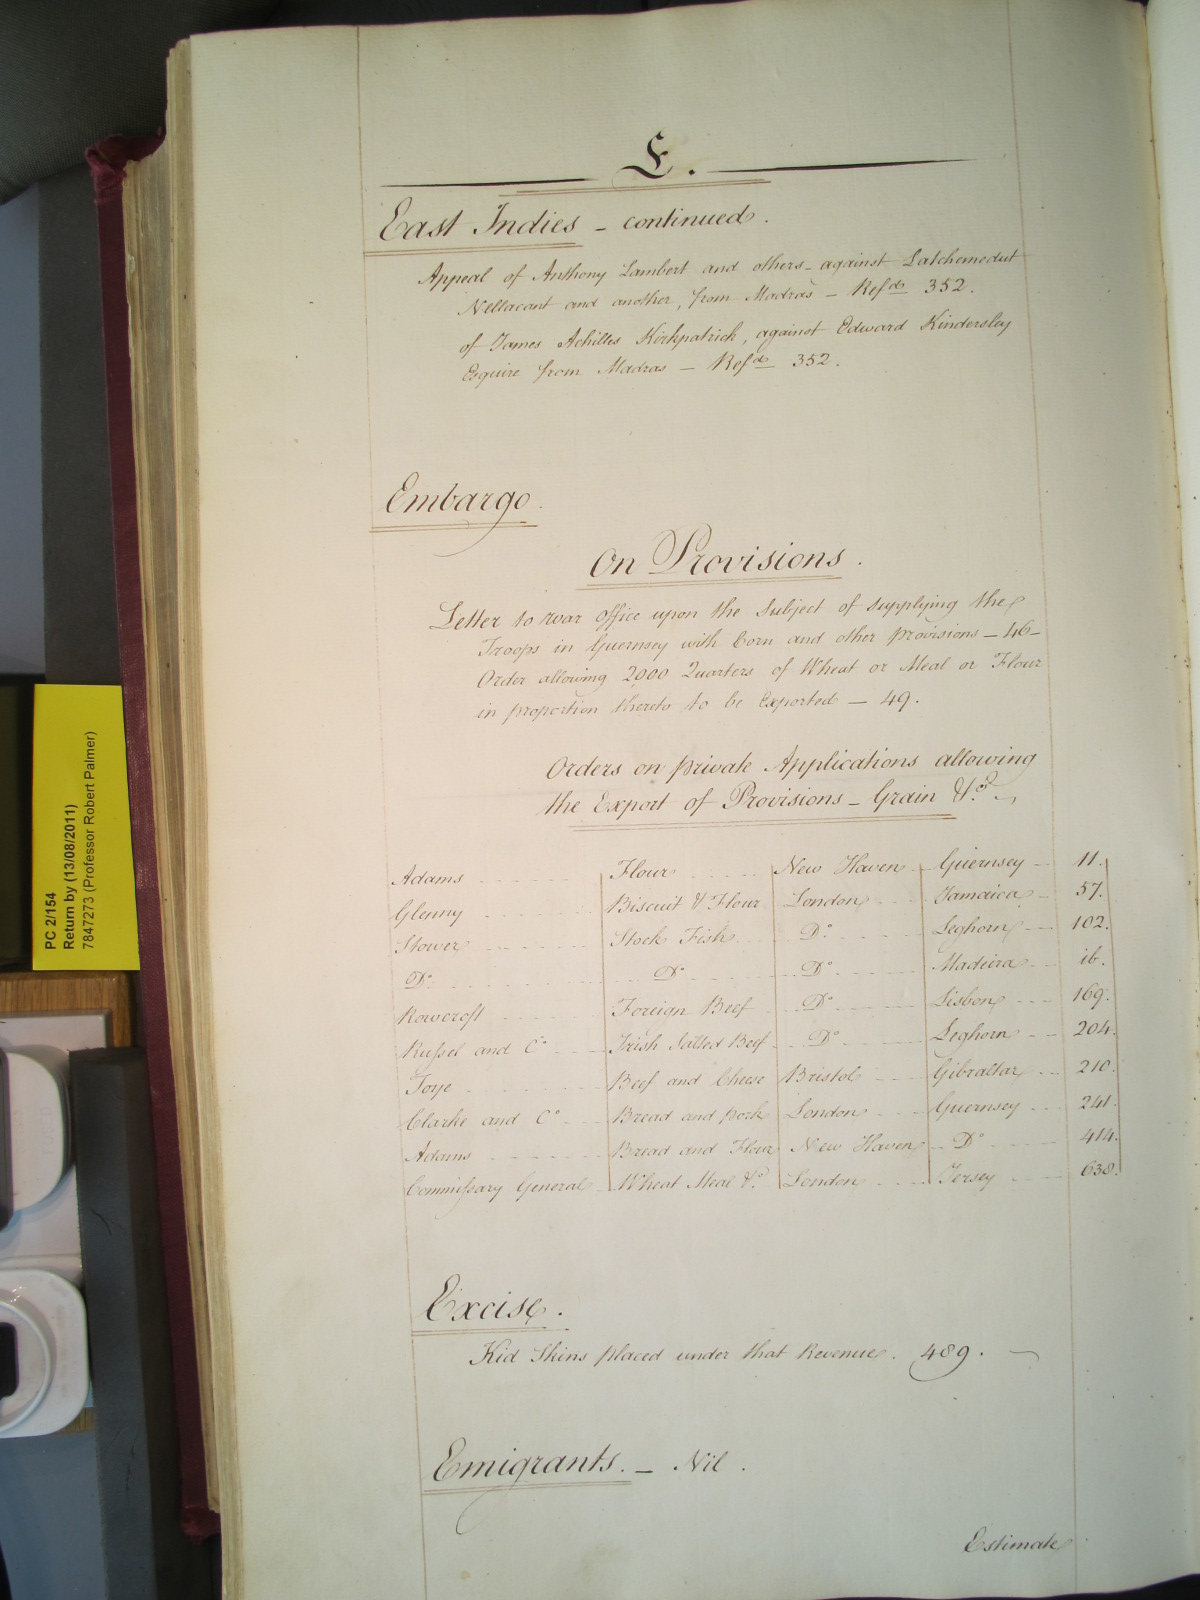 E.
East Indies – continued.
Appeal of Anthony Lambert and others – against Latchemedut
Nellacant and another, from Madras – Refd 352.
of James Achilles Kirkpatrick, against Edward Kindersley
Esquire from Madras – Refd 352.
Embargo.
On Provisions.
Letter to War Office upon the Subject of supplying the
Troops in Guernsey with Corn and other provisions – 46 –
Order allowing 2000 Quarters of Wheat or Meal or Flour
in proportion thereto to be Exported – 49.
Orders on private Applications allowing
the Export of Provisions – Grain &c.
Adams Flour New Haven Guernsey 11.
Glenny Biscuit & Flour London Jamaica 57.
Stower Stock Fish Do Leghorn 102.
Do Do Do Madeira ib.
Rowcroft Foreign Beef Do Lisbon 169.
Russel and Co Irish Salted Beef Do Leghorn 204.
Toye Beef and Cheese Bristol Gibraltar 210.
Clarke and Co Bread and pork London Guernsey 241.
Adams Bread and Flour New Haven Do 414.
Commissary General Wheat Meal &c London Jersey 638.
Excise.
Kid Skins placed under that Revenue. 489.
Emigrants. – Nil.
Estimate
PC 2/154
Return by (13/08/2011)
7847273 (Professor Robert Palmer)